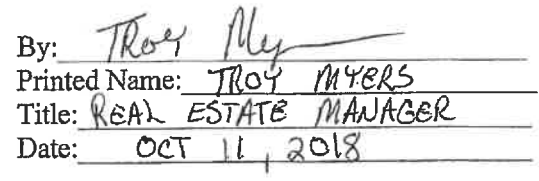 By: Troy Mye
Printed Name: TROY MYERS
Title: REAL ESTATE MANAGER
Date: OCT 11, 2018